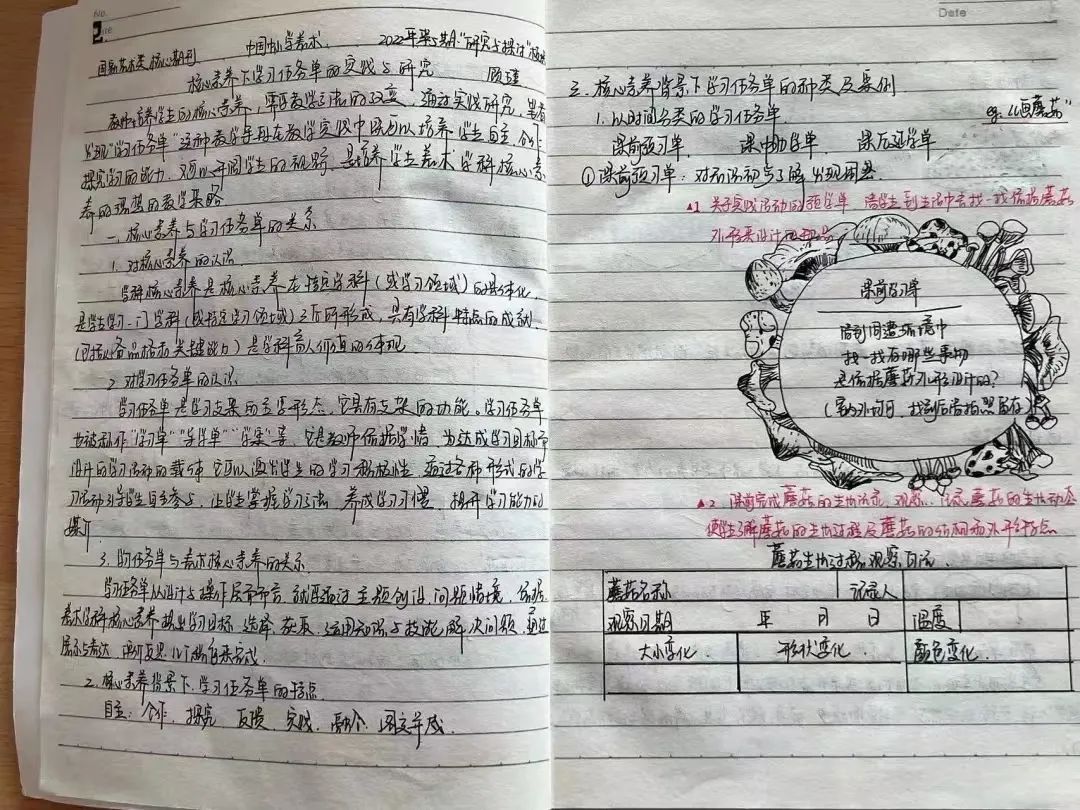 No.
Date
国家艺术类核心期刊 中国中小学美术 2022年第5期“研究与探讨”
核心素养下学习任务单的实践与研究 顾瑾
教师培养学生的核心素养，需要教学方法的改变，通过实践研究，笔者
发现“学习任务单”这种教学手段在教学实践中既可以培养学生自主、合作、
探究学习的能力，又可以开阔学生的视野，是培养学生美术学科核心素
养的理想的教学策略
一、核心素养与学习任务单的关系
1. 对核心素养的认识
学科核心素养是核心素养在特定学科（或学习领域）的具体化，
是学生学习一门学科（或特定学习领域）之后所形成，具有学科特点的成就，
（包括必备品格和关键能力）是学科育人价值的体现
2. 对学习任务单的认识
学习任务单是学习支架的主要形态，它具有支架的功能。学习任务单
也被称作“学习单”“导学单”“学案”等，它是教师依据学情，为达成学习目标而
设计的学习活动的载体，它可以激发学生的学习积极性，通过各种形式的学
习活动引导学生自主参与，让学生掌握学习方法，养成学习习惯，提升学习能力的
媒介
3. 学习任务单与美术核心素养的关系
学习任务单从设计与操作层面而言，就是通过主题创设，问题情境，依据
美术学科核心素养提出学习目标，选择、获取、运用知识与技能解决问题，通过
展示与表达，
二、核心素养背景下学习任务单的特点
自主、合作、探究、反馈、实践、融合、图文并茂
Date
三、核心素养背景下学习任务单的种类及案例
1. 以时间分类的学习任务单 eg.《画蘑菇》
课前预习单、 课中助学单、 课后延学单
①课前预习单：对新活动与了解发现困惑
▲1 关于实践活动的预学单 请学生到生活中去找一找依据蘑菇
外形来设计的物品
课前学习单
请到周遭环境中
找一找有哪些事物
是依据蘑菇外形设计的？
（室内外均可，找到后请拍照留存）
▲2 课前完成蘑菇的生长记录，观察、记录蘑菇的生长动态
使学生了解蘑菇的生长过程及蘑菇的结构和外形特点
蘑菇生长过程观察日记
蘑菇名称 记录人
观察日期 年 月 日 温度
大小变化 形状变化 颜色变化